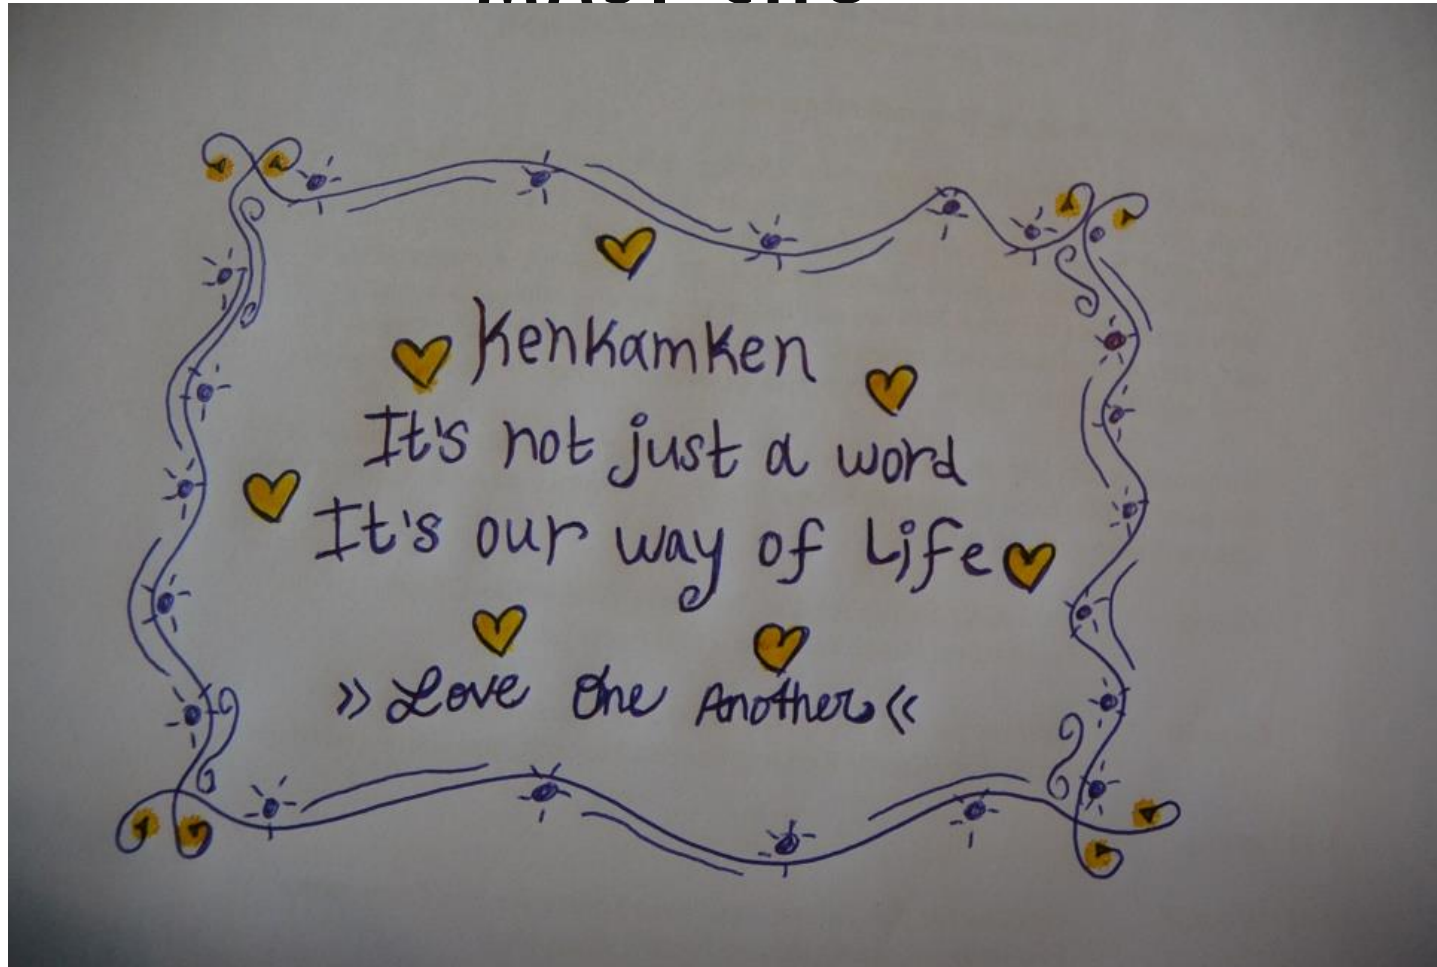 KenKamKen
It's not just a word
It's our way of Life
»Love One Another«